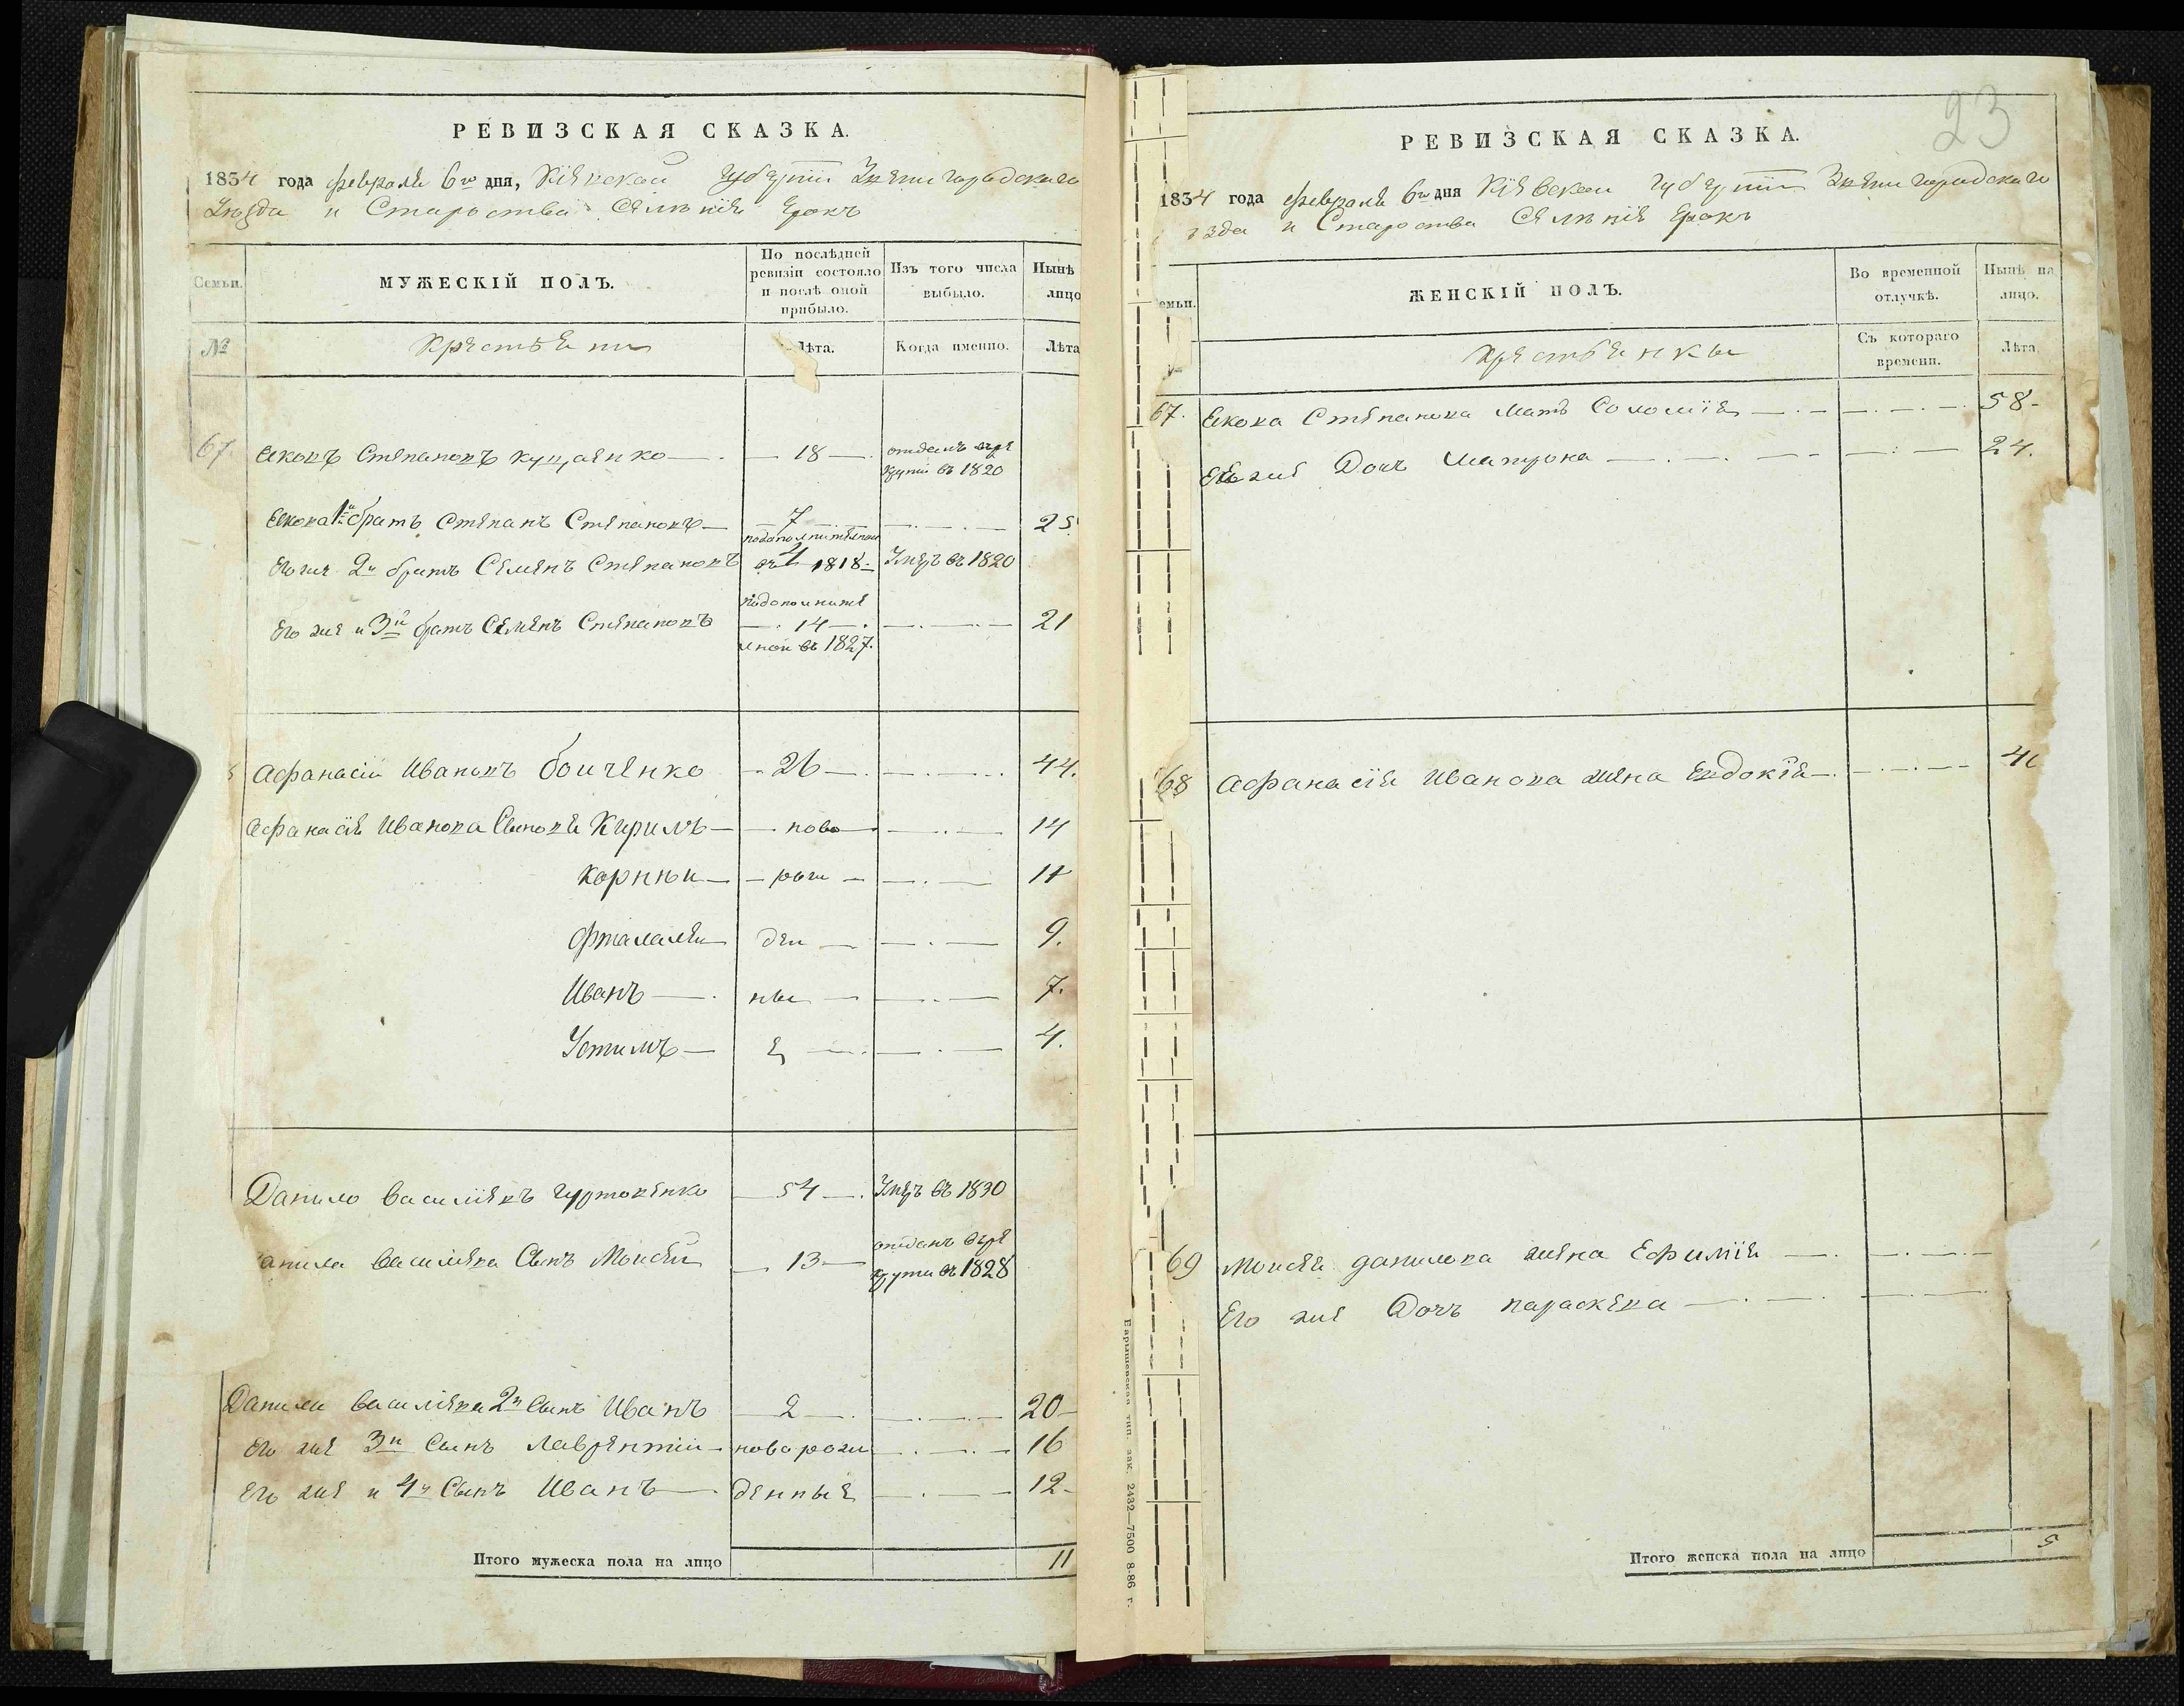 РЕВИЗСКАЯ СКАЗКА.
1834 года февраля 6го дня, Кіевской Губерніи Звенигородскаго
Уезда и Староства Селеніе Ерокъ
Семьи.
МУЖЕСКІЙ ПОЛЪ.
По послѣдней ревизіи состояло и послѣ оной прибыло.
Изъ того числа выбыло.
Нынѣ лицо
№
Крестьяни
Лѣта.
Когда именно.
Лѣта
67. Яковъ Степановъ Куценко 18 отданъ врекрути въ 1820
Якова 1й братъ Степанъ Степановъ 7 25
Его же 2й братъ Семенъ Степановъ 1818 Умеръ въ 1820
Его же и 3й братъ Семенъ Степановъ 14 въ 1827. 21
Афанасій Ивановъ Бойченко 26 44.
Афанасія Иванова Сыновя Кирилъ ново 14
Корнѣй рож 11
Фталамей ден 9.
Иванъ ны 7.
Устимъ е 4.
Данило Василіевъ Гуртовенко 54 Умеръ въ 1830
Данила Василіева Сынъ Моисей 13 отданъ врекрути въ 1828
Данила Василіева 2й Сынъ Иванъ 2 20
Его же 3й Сынъ Лаврентій новорож 16
Его же и 4й Сынъ Иванъ денные 12
Итого мужеска пола на лицо 11
Барышевская тип. зак. 2432—7500 8-86 г.
23
РЕВИЗСКАЯ СКАЗКА.
1834 года февраля 6го дня Кіевской Губерніи Звенигородскаго
ѣзда и Староства Селеніе Ерокъ
емьи.
ЖЕНСКІЙ ПОЛЪ.
Во временной отлучкѣ.
Нынѣ на лицо.
Крестьянкы
Съ котораго времени.
Лѣта
67. Якова Степанова мать Соломія 58
Ея же Дочь Мапрона 24.
68 Афанасія Иванова жена Евдокія
69 Моисея Данилова жена Ефимія
Его же Дочь Параскева
Итого женска пола на лицо 5